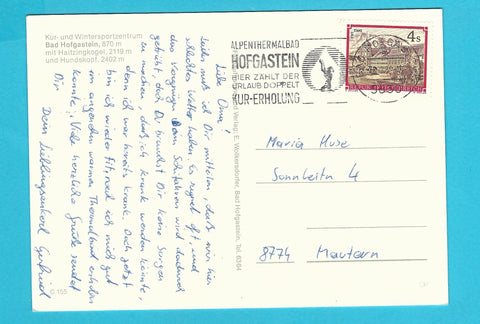 Kur- und Wintersportzentrum
Bad Hofgastein, 870 m
mit Haitzingkogel, 2119 m
und Hundskopf, 2402 m
Liebe Oma!
Leider muß ich Dir mitteilen, daß wir hier
schlechtes Wetter haben. Es regnet oft, und
das Vergnügen beim Schifahren wird dadurch
getrübt, doch Du brauchst Dir keine Sorgen
zu machen, daß ich krank werden könnte,
denn ich war bereits krank. Doch jetzt
bin ich wieder fit, weil ich mich gut
im angenehm warmen Thermalbad erholen
konnte. Viele herzliche Grüße sendet
Dir Dein Lieblingsenkerl
© 155
Verlag: E. Wolkersdorfer, Bad Hofgastein, Tel. 63/64
ALPENTHERMALBAD
HOFGASTEIN
HIER ZÄHLT DER
URLAUB DOPPELT
KUR-ERHOLUNG
4s
REPUBLIK ÖSTERREICH
Maria Huse
Sonnleitn 4
8774 Mautern